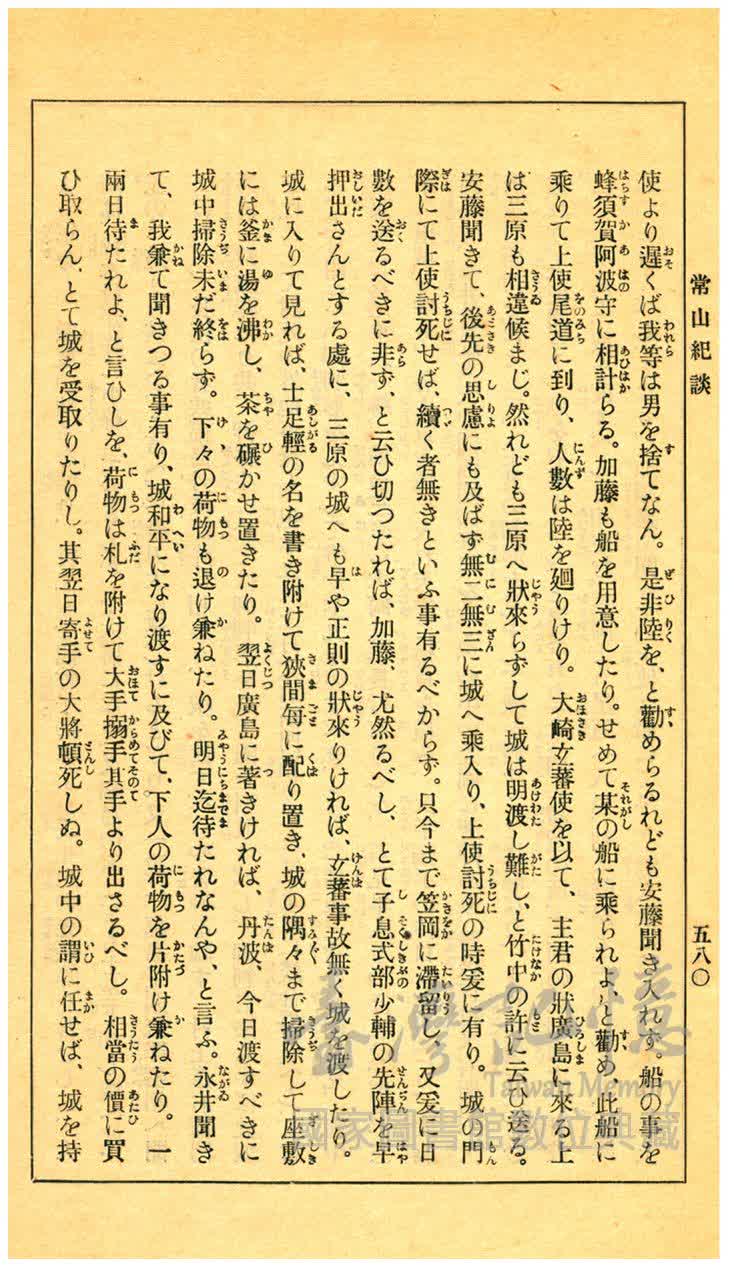 常山紀談
五八〇
使より遲くば我等は男を捨てなん。是非陸を、と勸めらるれども安藤聞き入れず。船の事を
蜂須賀阿波守に相計らる。加藤も船を用意したり。せめて某の船に乘られよ、と勸め、此船に
乘りて上使尾道に到り、人數は陸を廻りけり。大崎玄蕃使を以て、主君の狀廣島に來る上
は三原も相違候まじ。然れども三原へ狀來らずして城は明渡し難し、と竹中の許に云ひ送る。
安藤聞きて、後先の思慮にも及ばず無二無三に城へ乘入り、上使討死の時爰に有り。城の門
際にて上使討死せば、續く者無きといふ事有るべからず。只今まで笠岡に滯留し、又爰に日
數を送るべきに非ず、と云ひ切つたれば、加藤、尤然るべし、とて子息式部少輔の先陣を早
押出さんとする處に、三原の城へも早や正則の狀來りければ、玄蕃事故無く城を渡したり。
城に入りて見れば、士足輕の名を書き附けて狹間每に配り置き、城の隅々まで掃除して座敷
には釜に湯を沸し、茶を碾かせ置きたり。翌日廣島に著きければ、丹波、今日渡すべきに
城中掃除未だ終らず。下々の荷物も退け兼ねたり。明日迄待たれなんや、と言ふ。永井聞き
て、我兼て聞きつる事有り、城和平になり渡すに及びて、下人の荷物を片附け兼ねたり。一
兩日待たれよ、と言ひしを、荷物は札を附けて大手搦手其手より出さるべし。相當の價に買
ひ取らん、とて城を受取りたりし。其翌日寄手の大將頓死しぬ。城中の謂に任せば、城を持
臺灣記憶
Taiwan Memory
國家圖書館數位典藏